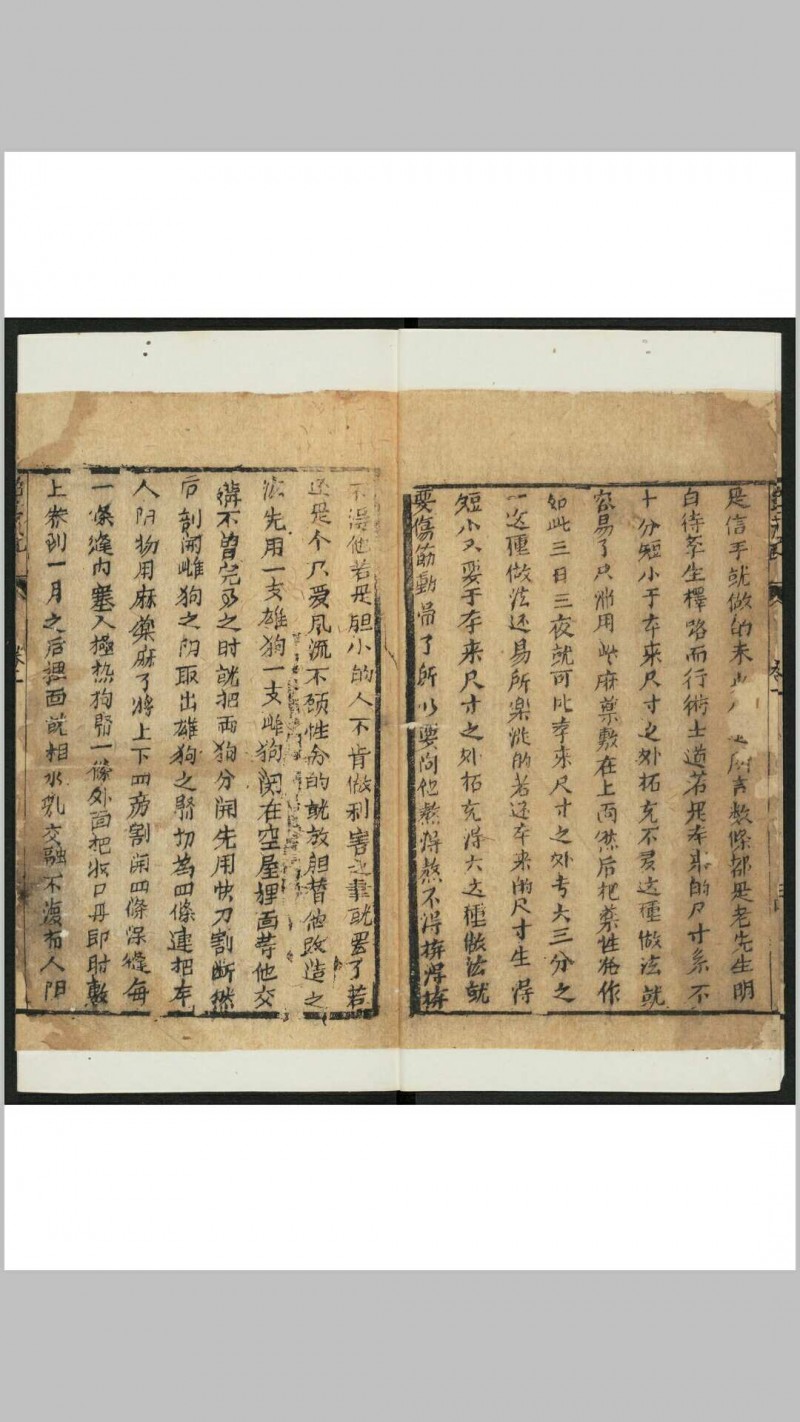 是信手就做的未
言教條都是老先生明
白待學生擇路而行術士道若是本來的尺寸系不
十分短小于本来尺寸之外拓充不多这種做法就
容易了只消用些麻藥敷在上面然后把藥性
作
如此三日三夜就可比本来尺寸之外专大三分之
一这種做法还易所樂從的若还本来的尺寸生得
短小又要于本来尺寸之外拓充得大这種做法就
要傷筋動骨了所以要问他熬得熬不得拚得拚
不得他若是胆小的人不肯做利害之事就罢了若
还是个只爱風流不顾性命的就放胆替他改造之
法先用一支雄狗一支雌狗関在空屋裡面等他交
媾不曾完事之时就把两狗分開先用快刀割断
后剖開雌狗之阴取出雄狗之腎切為四條連把本
人阴物用麻藥麻了將上下四旁割開四條深縫每
一條縫内塞入極热狗腎一條外面把收口丹即时敷
上养到一月之后裡面就相水乳交融不復有人阳